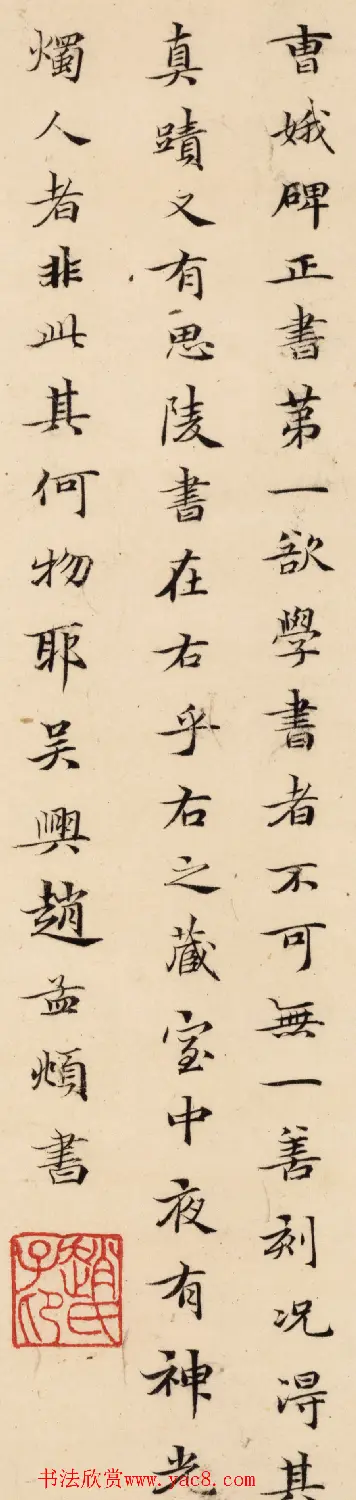 曺娥碑正書第一欲學書者不可無一善刻况淂其
真蹟又有思陵書在右乎右之蔵室中夜有神光
燭人者非此其何物耶吴興趙孟頫書
趙氏子印
书法欣赏www.yac8.com